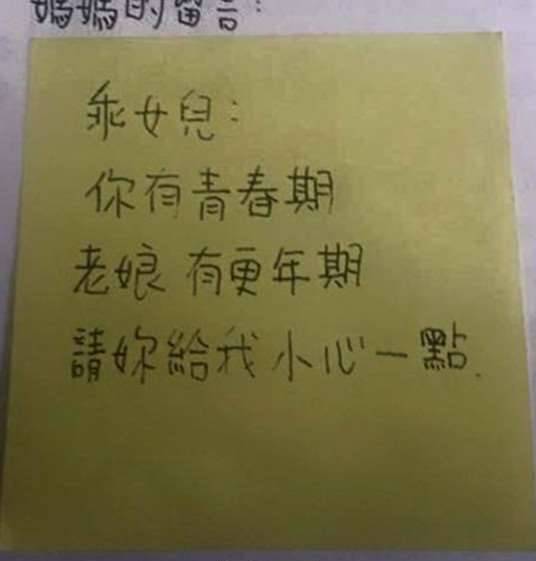 媽媽的留言:
乖女兒:
你有青春期
老娘 有更年期
請妳給我小心一點.